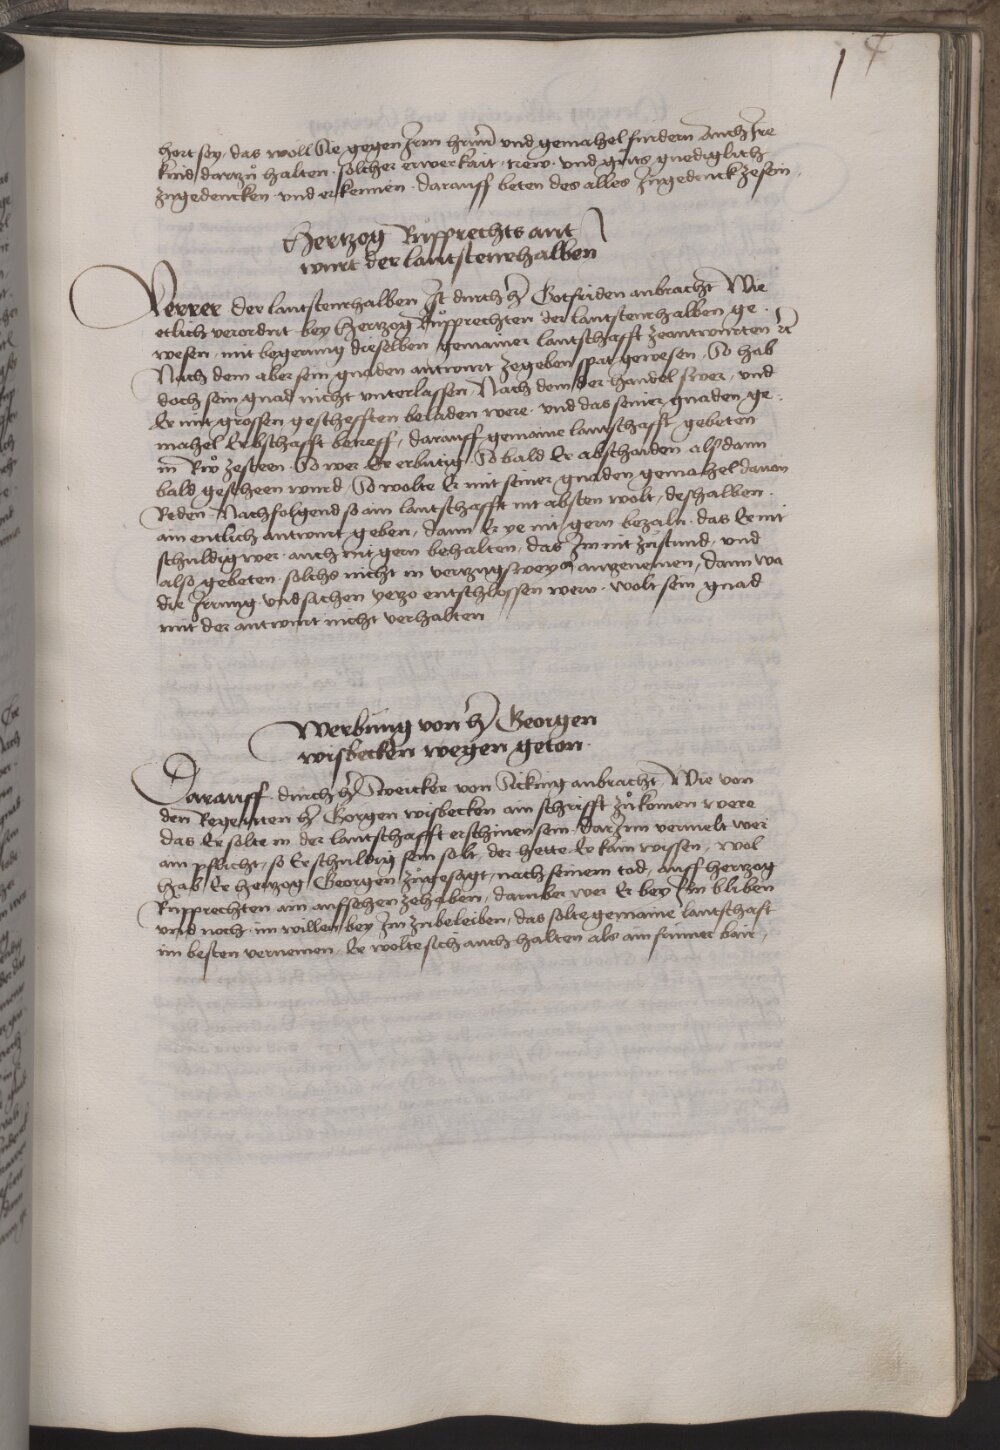 14
hort sey, das woll Sie gegen Irm herrn und gemahel furdern Auch Ire
kind dartzu halten. solcher erwerkait, trew. und guts gnediglich
zugedencken. und erkennen. darauff beten des alles Ingedenck ze sein.
Hertzog Rupprechts ant
wurt der lantstewrhalben
Verrer der lantstewrhalben Ist durch her Gotfriden anbracht Wie
etlich verordnt bey Hertzog Rupprechten der lantstewrhalben ge
wesen, mit begerung dieselben gemainer lantschafft zeantwurten etc
Nach dem aber sein gnaden antwurt zegeben spat gewesen, So hab
doch sein gnad nicht unterlassen, Nach dem der handel swer, und
Er mit grossen geschefften beladen were. und das seiner gnaden ge
mahel Erbschafft betreff, darauff gemaine lantschafft gebeten
in Rw zesteen. So wer Er erbutig, So bald Er abschaiden als dann
bald gescheen wurd, So wolte Er mit seiner gnaden gemahel davon
Reden. Nachfolgend so ain lantschafft nit absten wolt, deshalben
ain entlich antwurt geben, dann Er ye nit gern bezaln. das Er nit
schuldig wer. auch nit gern behalten, das Im nit zustund, und
also gebeten. solchs nicht in vertzugs weys antzenemen, dann wa
die Irrung. und sachen yetzo entschlossen wern. wolt sein gnad
mit der antwurt nicht verhalten
Werbung von her Georgen
wisbecken wegen geton.
Darauff durch her Sweicker von Sicking anbracht, Wie von
den Regenten her Gorgen wisbecken ain schrifft zukomen were
das Er solte in der lantschafft erschinen sein. dar Inn vermelt wer
ain pflicht, so Er schuldig sein solt, der hette Er kain wissen, wol
hab Er hertzog Georgen zugesagt, nach seinem tod, auff hertzog
Rupprechten ain auffsehen zehaben, daruber wer Er bey Im bliben
und noch im willen bey Im zubeleiben, das solte gemaine lantschaft
im besten vernemen. Er wolte sich auch halten als ain frumer bair,